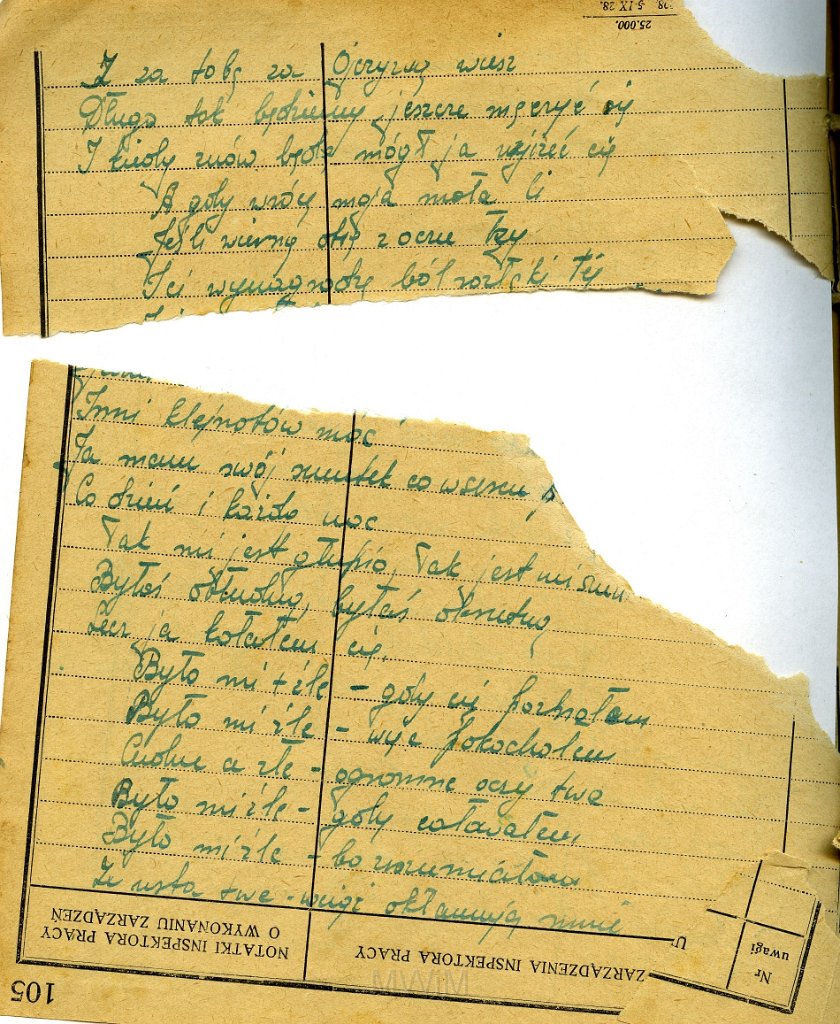 25.000.
28. 5 IX 28.
Z za tobą za Ojczyzną wiesz
Długo tak będziemy jeszcze męczyć się
I kiedy znów będę mógł ja ujrzeć cię
A gdy wrócę moja mała li
Jeśli wierną otrę z oczu łzy
I ci wynagrodzę ból rozłąki tej
Inni klejnotów moc
Ja mam swój smutek co w sercu
Co dzień i każdą noc
Tak mi jest głupio, tak jest mi smu
Byłaś obłudną, byłaś okrutną
Lecz ja kochałem cię.
Było mi źle - gdy cię poznałem
Było mi źle - więc pokochałem
Cudne a złe - ogromne oczy twe
Było mi źle - gdy całowałem
Było mi źle - bo zrozumiałem
Że usta twe - wciąż okłamują mnie
NOTATKI INSPEKTORA PRACY
O WYKONANIU ZARZĄDZEŃ
ZARZĄDZENIA INSPEKTORA PRACY
U
Nr
uwagi
105
MWiM